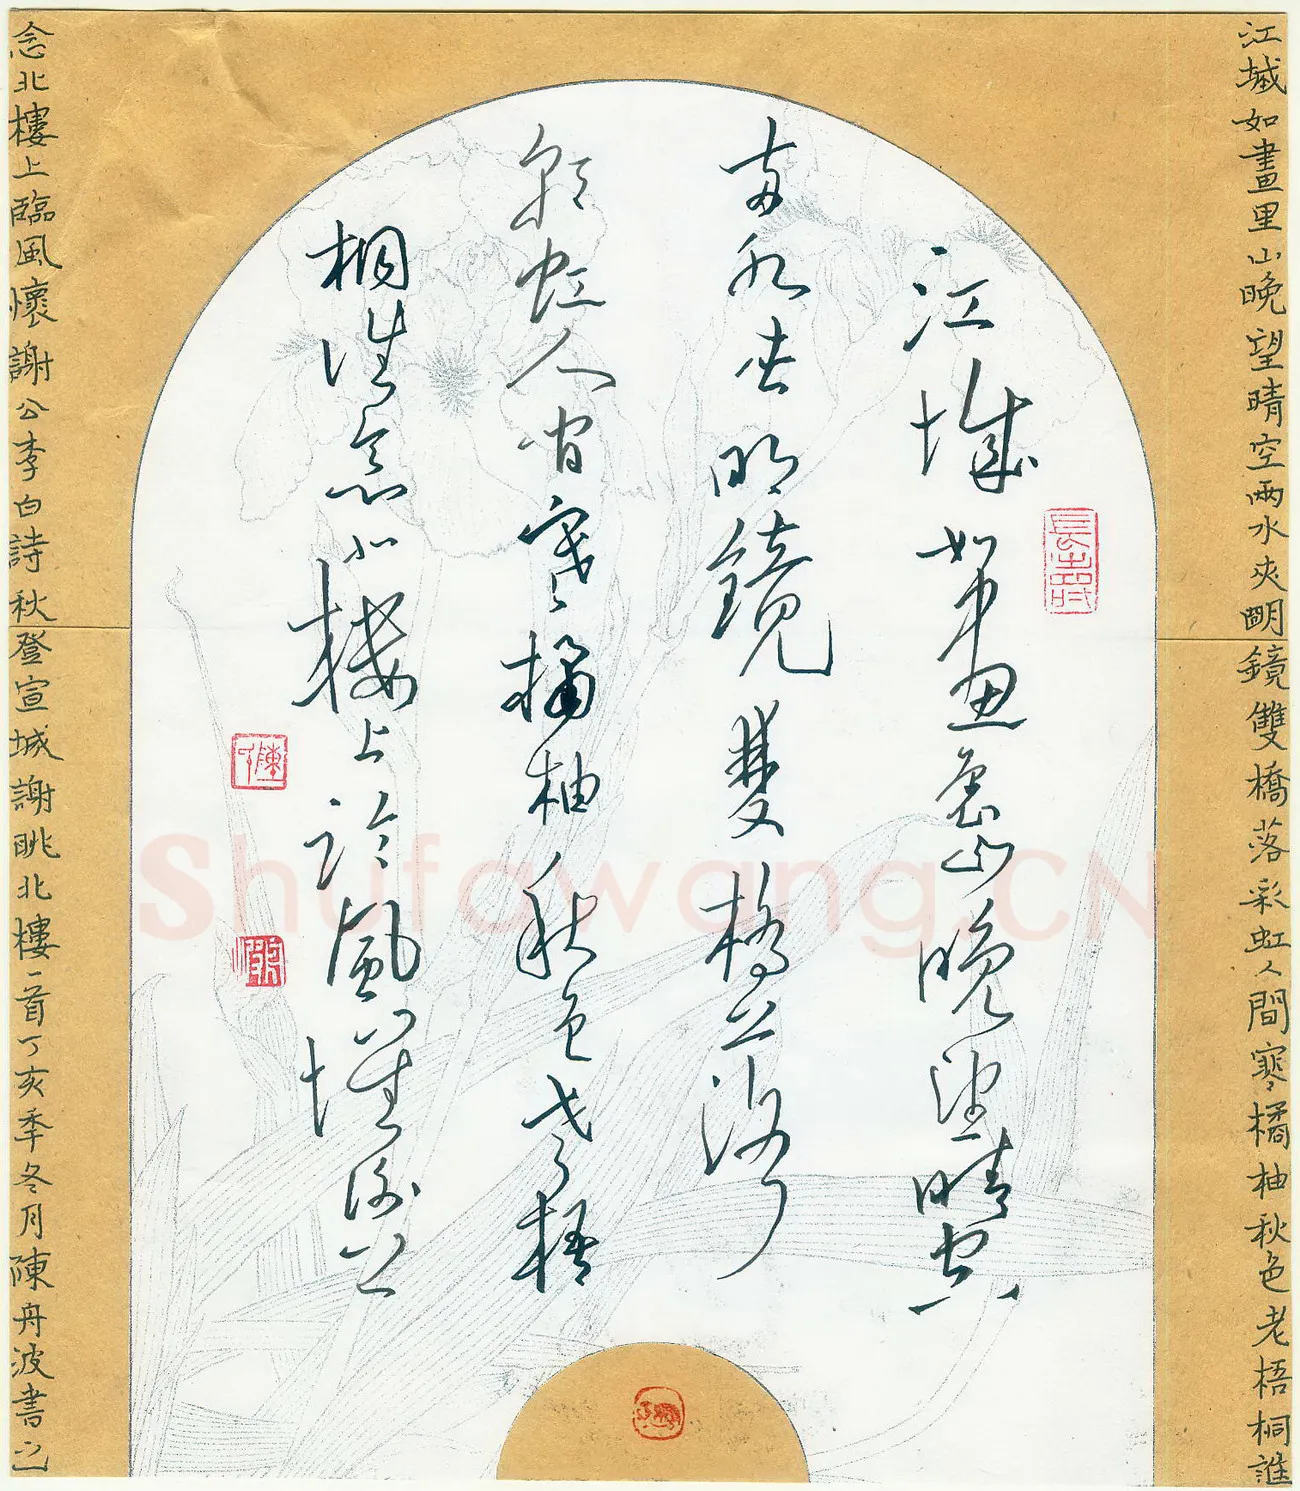 江城如畫里山晚望晴空兩水夾明鏡雙橋落彩虹人間寒橘柚秋色老梧桐誰
江城如畫里山晚望晴空
兩水夾明鏡雙橋落
彩虹人間寒橘柚秋色老梧
桐誰念北樓上臨風懷謝公
念北樓上臨風懷謝公李白詩秋登宣城謝眺北樓一首丁亥季冬月陳舟波書之
Shufawang.CN